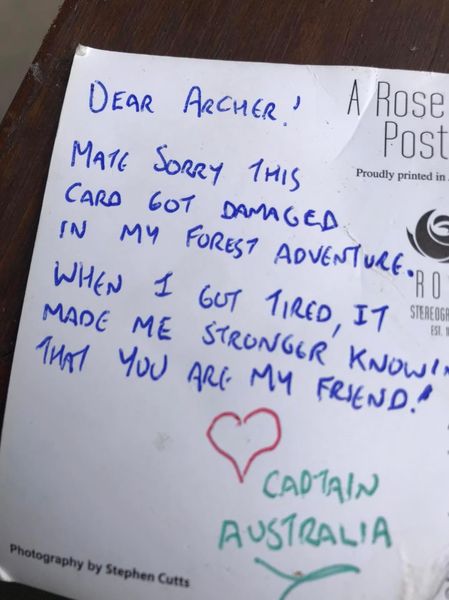 DEAR ARCHER!
MATE SORRY THIS
CARD GOT DAMAGED
IN MY FOREST ADVENTURE.
WHEN I GOT TIRED, IT
MADE ME STRONGER KNOWIN
THAT YOU ARE MY FRIEND!
CAPTAIN
AUSTRALIA
Photography by Stephen Cutts
A Rose
Post
Proudly printed in
RO
STEREOGR
EST.